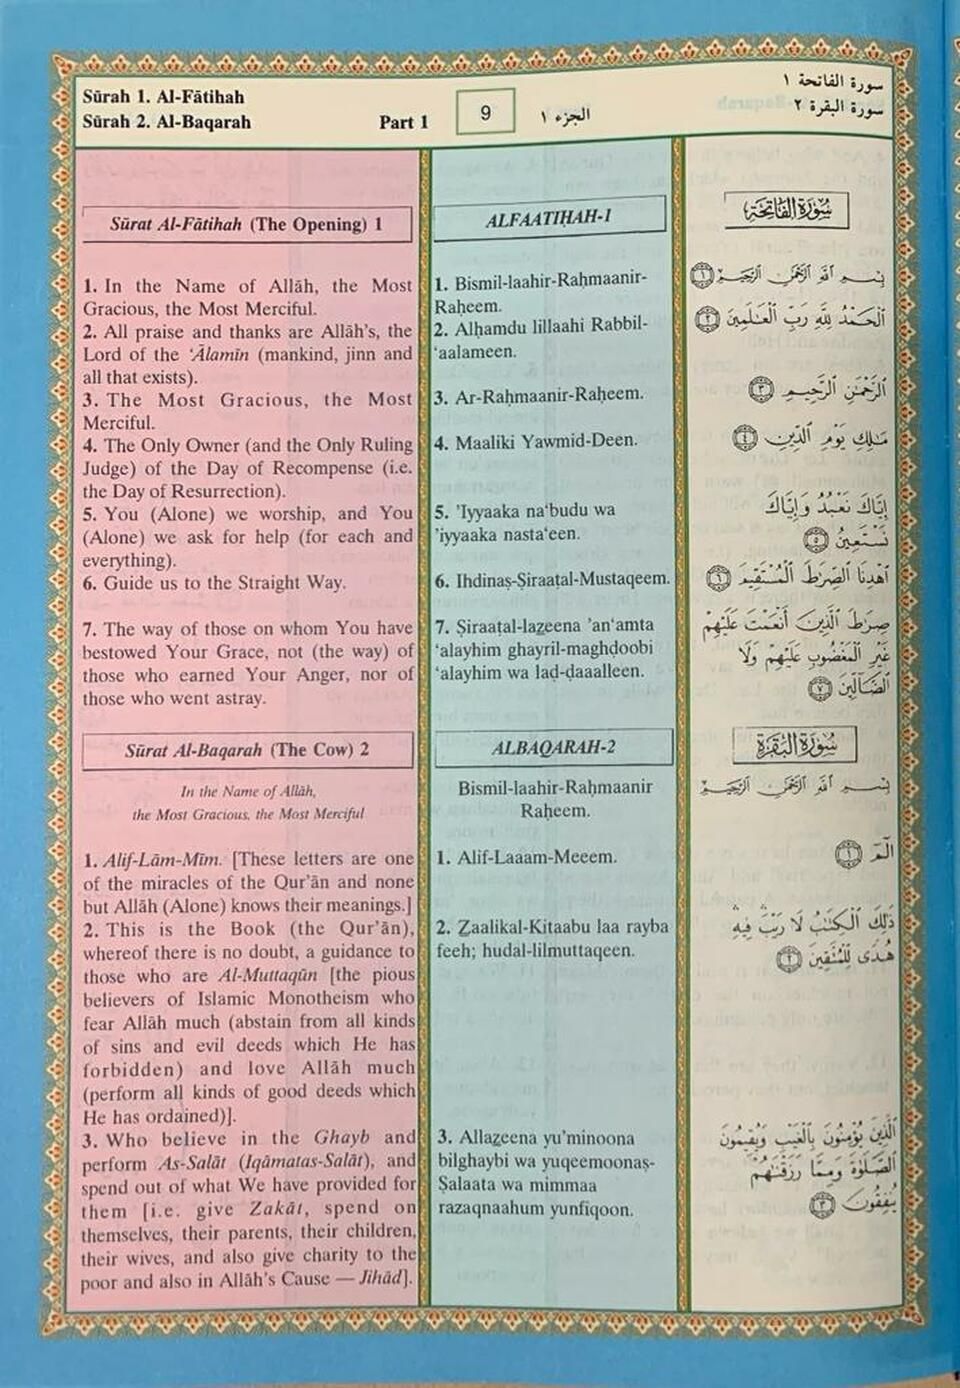 Sūrah 1. Al-Fātihah
Sūrah 2. Al-Baqarah
Part 1
9
الجزء ١
سورة الفاتحة ١
سورة البقرة ٢
Sūrat Al-Fātihah (The Opening) 1
1. In the Name of Allāh, the Most
Gracious, the Most Merciful.
2. All praise and thanks are Allāh's, the
Lord of the 'Ālamīn (mankind, jinn and
all that exists).
3. The Most Gracious, the Most
Merciful.
4. The Only Owner (and the Only Ruling
Judge) of the Day of Recompense (i.e.
the Day of Resurrection).
5. You (Alone) we worship, and You
(Alone) we ask for help (for each and
everything).
6. Guide us to the Straight Way.
7. The way of those on whom You have
bestowed Your Grace, not (the way) of
those who earned Your Anger, nor of
those who went astray.
Sūrat Al-Baqarah (The Cow) 2
In the Name of Allāh,
the Most Gracious, the Most Merciful
1. Alif-Lām-Mīm. [These letters are one
of the miracles of the Qur'ān and none
but Allāh (Alone) knows their meanings.]
2. This is the Book (the Qur'ān),
whereof there is no doubt, a guidance to
those who are Al-Muttaqūn [the pious
believers of Islamic Monotheism who
fear Allāh much (abstain from all kinds
of sins and evil deeds which He has
forbidden) and love Allāh much
(perform all kinds of good deeds which
He has ordained)].
3. Who believe in the Ghayb and
perform As-Salāt (Iqāmatas-Salāt), and
spend out of what We have provided for
them [i.e. give Zakāt, spend on
themselves, their parents, their children,
their wives, and also give charity to the
poor and also in Allāh's Cause — Jihād].
ALFAATIḤAH-1
1. Bismil-laahir-Raḥmaanir-
Raḥeem.
2. Alḥamdu lillaahi Rabbil-
'aalameen.
3. Ar-Raḥmaanir-Raḥeem.
4. Maaliki Yawmid-Deen.
5. 'Iyyaaka na'budu wa
'iyyaaka nasta'een.
6. Ihdinaṣ-Ṣiraaṭal-Mustaqeem.
7. Ṣiraaṭal-laẓeena 'an'amta
'alayhim ghayril-maghḍoobi
'alayhim wa laḍ-ḍaaalleen.
ALBAQARAH-2
Bismil-laahir-Raḥmaanir
Raḥeem.
1. Alif-Laaam-Meeem.
2. Ẓaalikal-Kitaabu laa rayba
feeh; hudal-lilmuttaqeen.
3. Allaẓeena yu'minoona
bilghaybi wa yuqeemoonaṣ-
Ṣalaata wa mimmaa
razaqnaahum yunfiqoon.
سُورَةُ الفَاتِحَةِ
بِسْمِ ٱللَّهِ ٱلرَّحْمَٰنِ ٱلرَّحِيمِ ١
ٱلْحَمْدُ لِلَّهِ رَبِّ ٱلْعَٰلَمِينَ ٢
ٱلرَّحْمَٰنِ ٱلرَّحِيمِ ٣
مَٰلِكِ يَوْمِ ٱلدِّينِ ٤
إِيَّاكَ نَعْبُدُ وَإِيَّاكَ
نَسْتَعِينُ ٥
ٱهْدِنَا ٱلصِّرَٰطَ ٱلْمُسْتَقِيمَ ٦
صِرَٰطَ ٱلَّذِينَ أَنْعَمْتَ عَلَيْهِمْ
غَيْرِ ٱلْمَغْضُوبِ عَلَيْهِمْ وَلَا
ٱلضَّآلِّينَ ٧
سُورَةُ البَقَرَةِ
بِسْمِ ٱللَّهِ ٱلرَّحْمَٰنِ ٱلرَّحِيمِ
الٓمٓ ١
ذَٰلِكَ ٱلْكِتَٰبُ لَا رَيْبَ ۛ فِيهِ ۛ
هُدًى لِّلْمُتَّقِينَ ٢
ٱلَّذِينَ يُؤْمِنُونَ بِٱلْغَيْبِ وَيُقِيمُونَ
ٱلصَّلَوٰةَ وَمِمَّا رَزَقْنَٰهُمْ
يُنفِقُونَ ٣